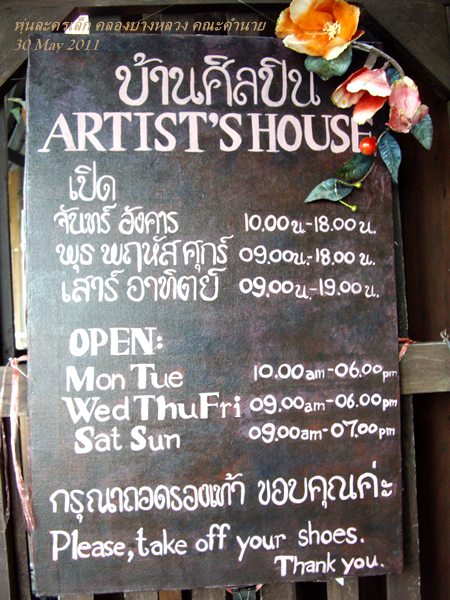 หุ่นละครเล็ก คลองบางหลวง คณะคำนาย
30 May 2011
บ้านศิลปิน
ARTIST'S HOUSE
เปิด
จันทร์ อังคาร 10.00 น.-18.00 น.
พุธ พฤหัส ศุกร์ 09.00 น.-18.00 น.
เสาร์ อาทิตย์ 09.00 น.-19.00 น.
OPEN:
Mon Tue 10.00 am-06.00 pm
Wed Thu Fri 09.00 am-06.00 pm
Sat Sun 09.00 am-07.00 pm
กรุณาถอดรองเท้า ขอบคุณค่ะ
Please, take off your shoes.
Thank you.